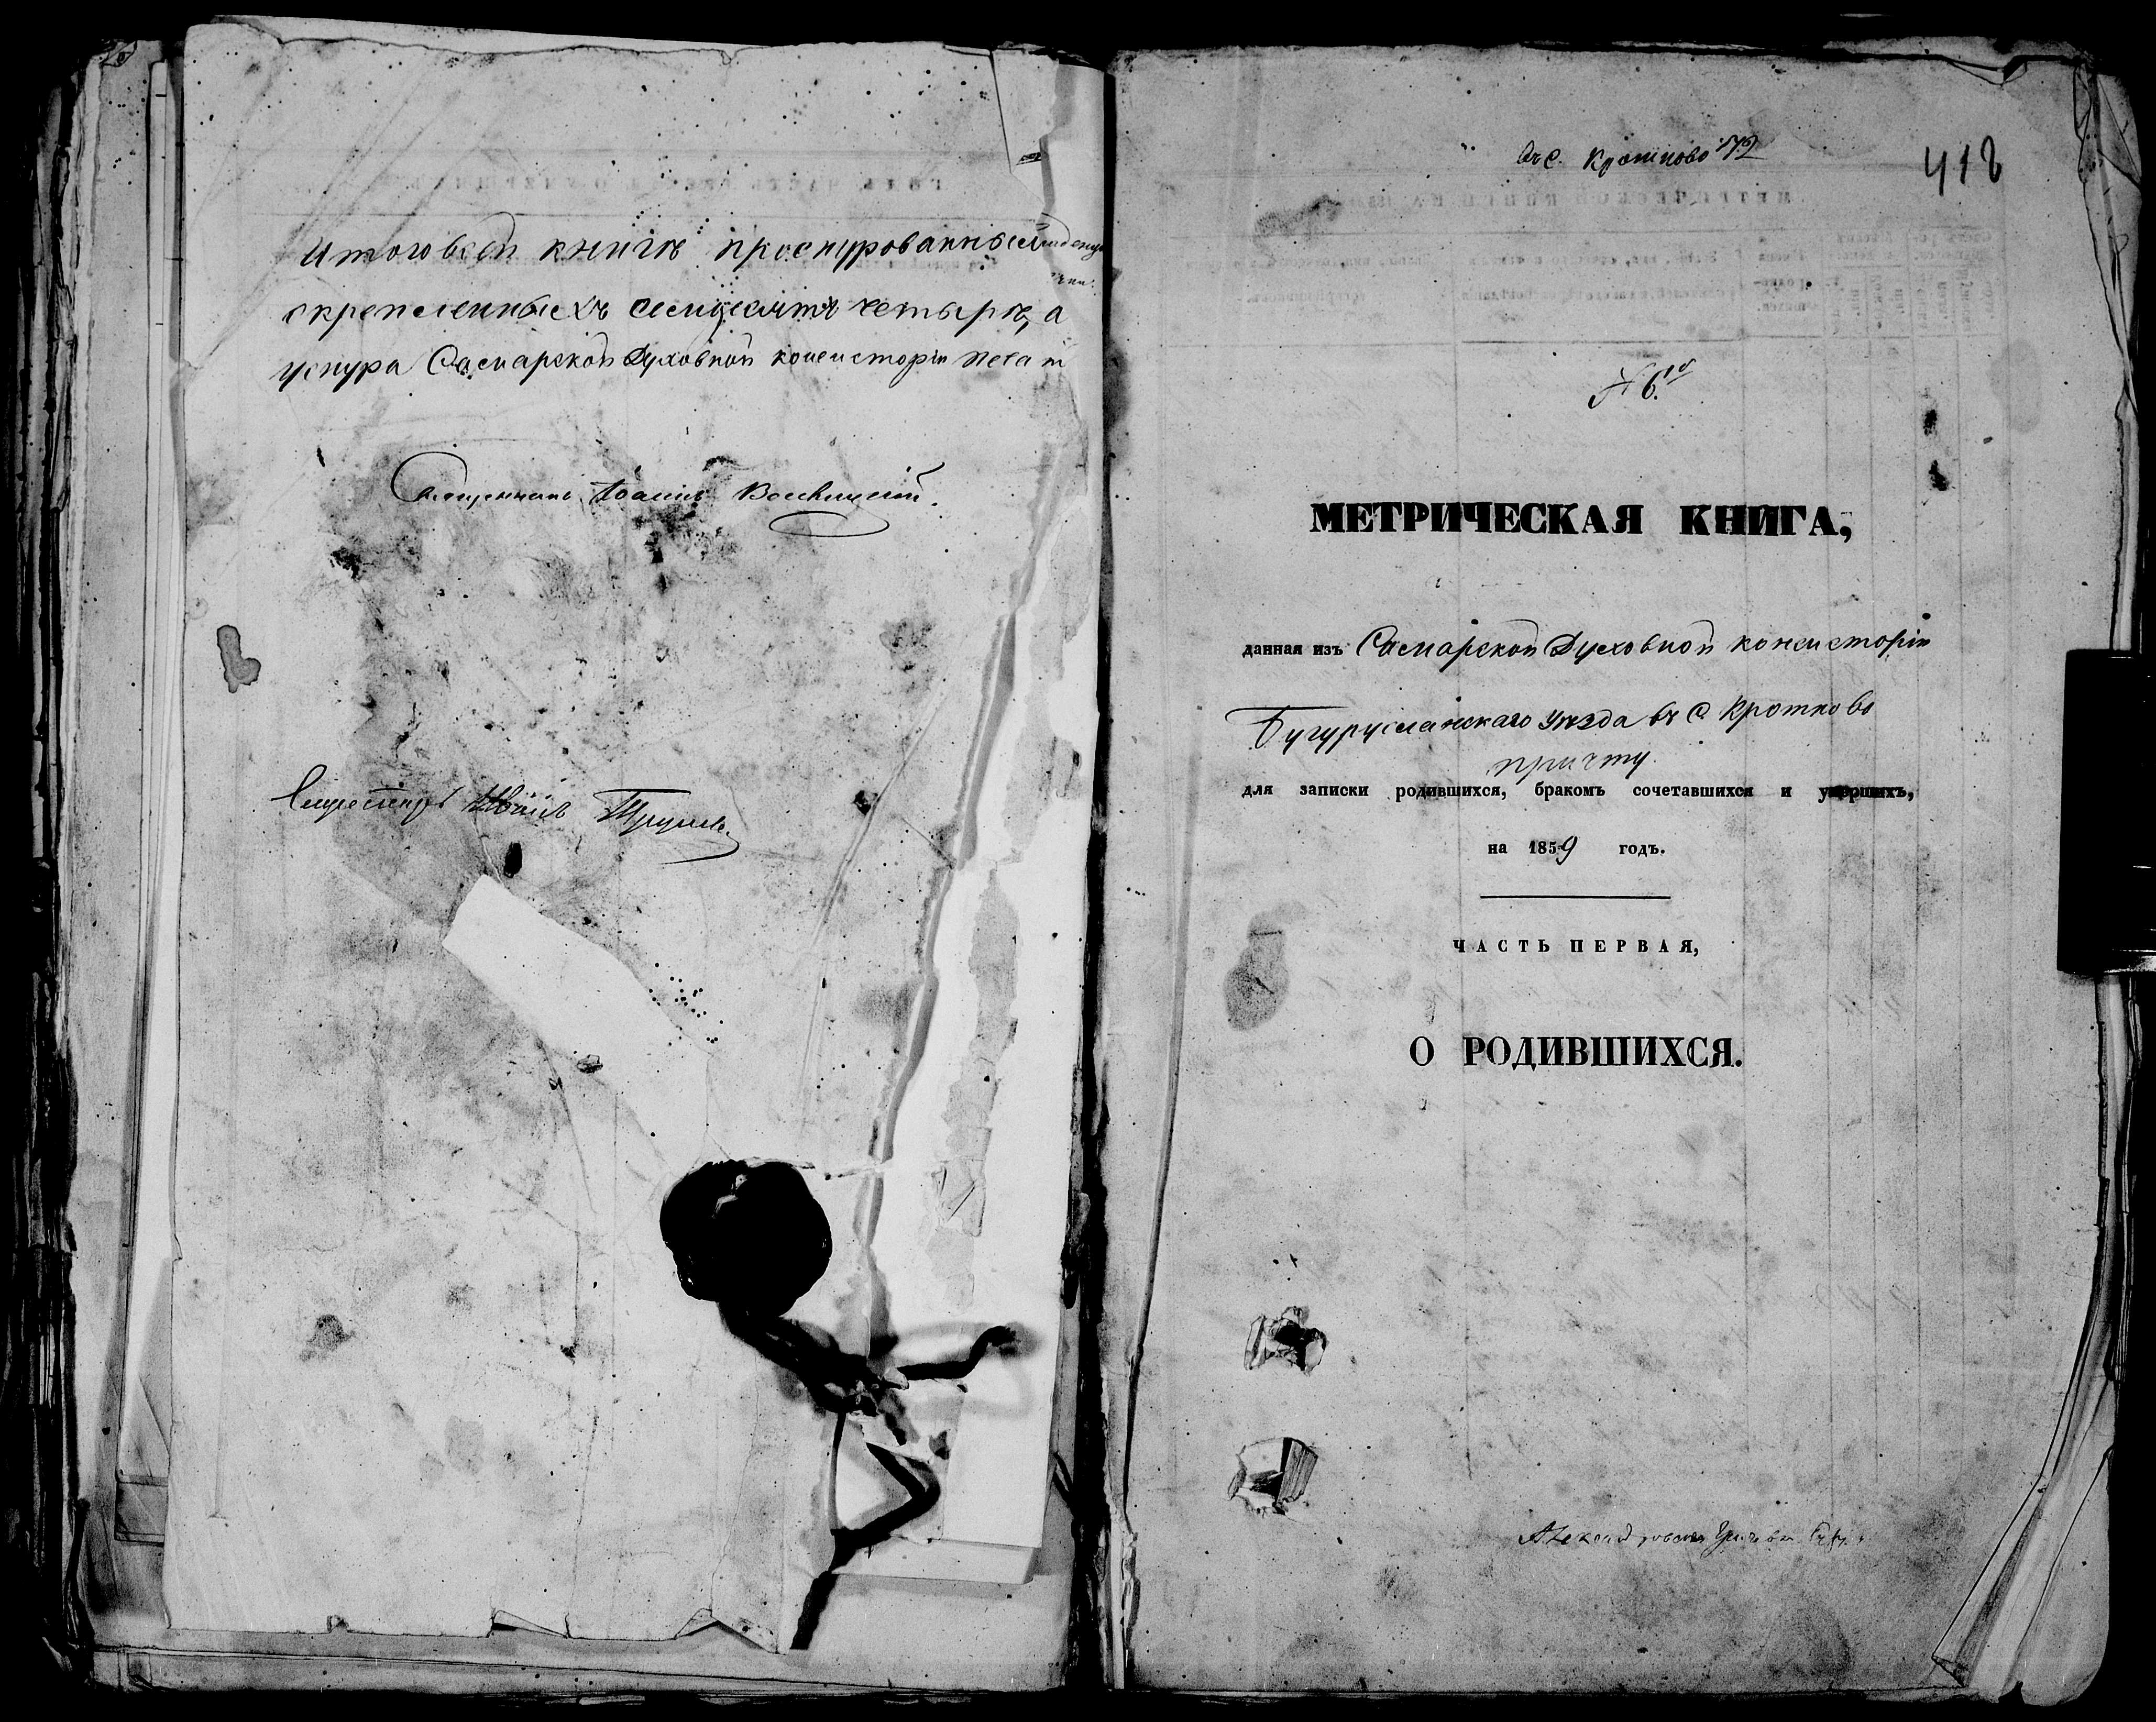 Итого въ сей книгѣ прошнурованныхъ
скрепленныхъ семдесятъ четыре, а
уснура Самарской Духовной консисторіи печат
Священникъ Іоаннъ
Секретарь Иванъ
въ С. Кротково
418
№ 6.й
МЕТРИЧЕСКАЯ КНИГА,
данная изъ Самарской Духовной консисторіи
Бугурусланскаго уѣзда въ С. Кротково
причту.
для записки родившихся, бракомъ сочетавшихся и умершихъ,
на 1859 годъ.
ЧАСТЬ ПЕРВАЯ,
О РОДИВШИХСЯ.